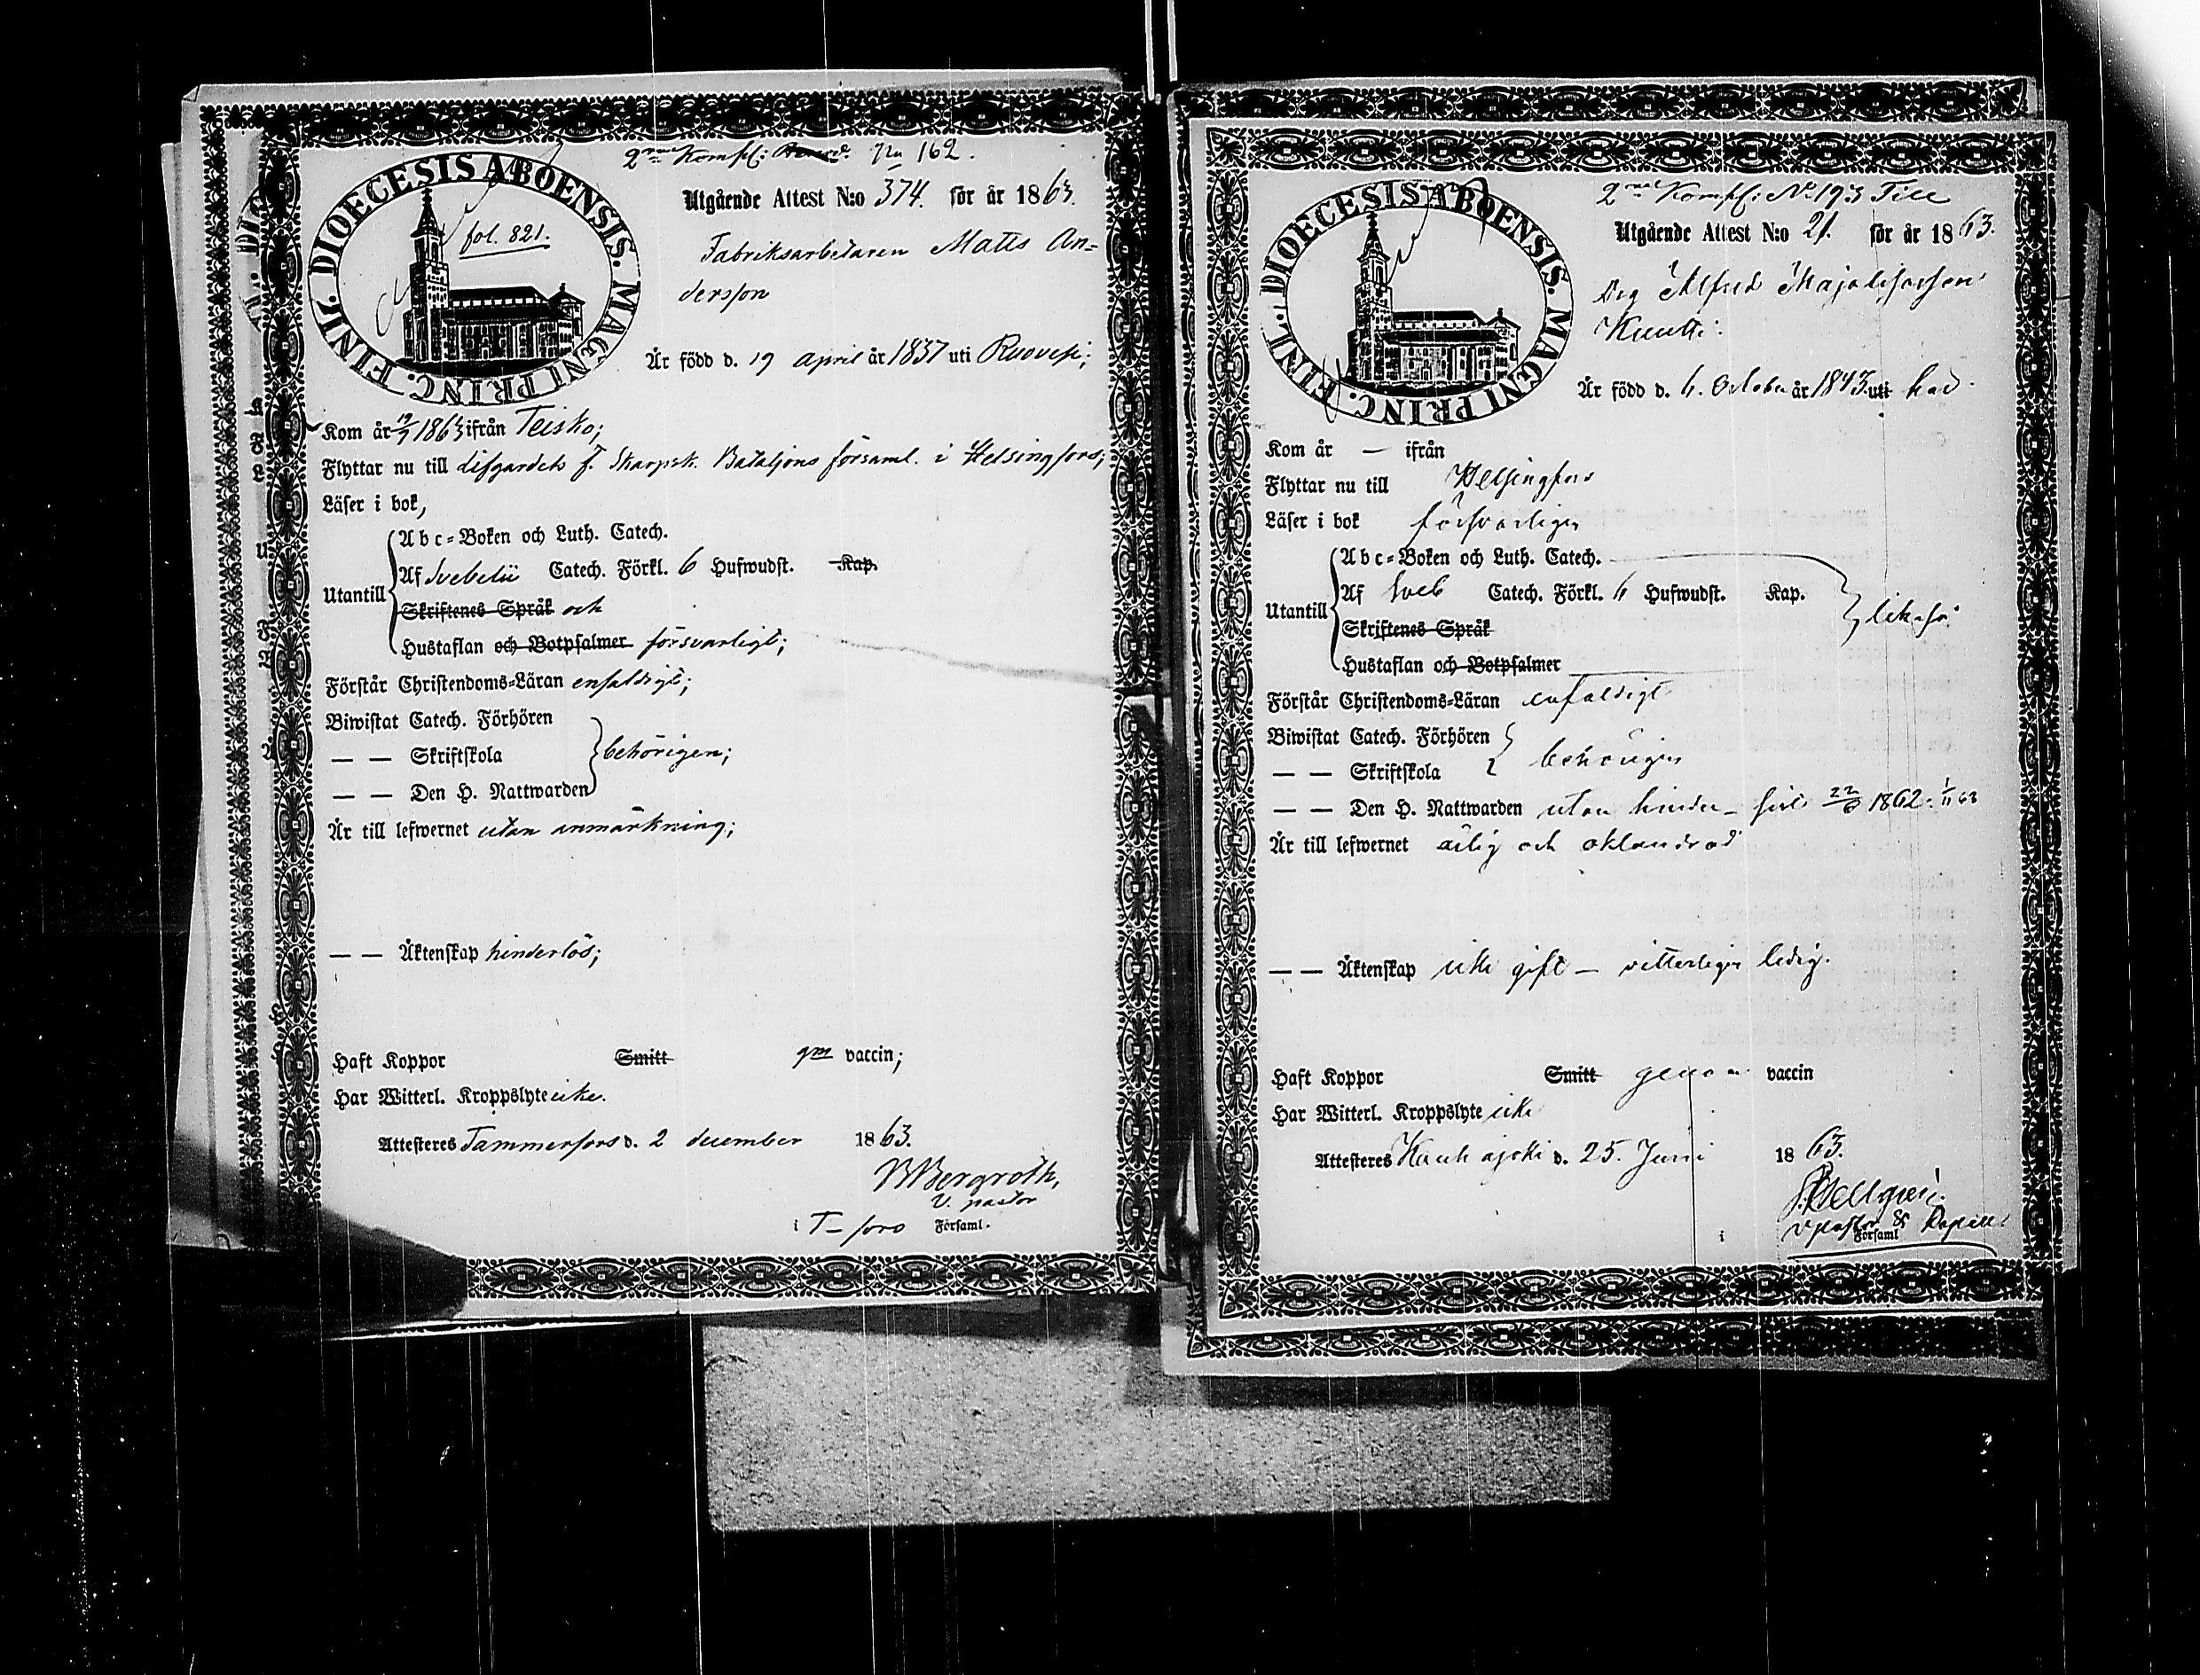 DIOECESIS ABOENSIS. MAGNI PRINC. FINL.
fol. 821.
2ne Komp: No 162.
Utgående Attest N:o 374. för år 1863.
Fabriksarbetaren Matts An=
dersson
Är född d. 19 april år 1837 uti Ruovesi;
Kom år 1863 ifrån Teisko;
Flyttar nu till Lifgardets F. Skarpsk. Bataljons församl. i Helsingfors;
Läser i bok,
Utantill
Abc=Boken och Luth. Catech.
Af Svebelii Catech. Förkl. 6 Hufwudst. Kap.
Skriftenes Språk och
Hustaflan och Botpsalmer försvarligt;
Förstår Christendoms=Läran enfaldigt;
Biwistat Catech. Förhören
— — Skriftskola behörigen;
— — Den H. Nattwarden
Är till lefwernet utan anmärkning;
— — Äktenskap hinderlös;
Haft Koppor Smitt gm vaccin;
Har Witterl. Kroppslyte icke.
Attesteres Tammerfors d. 2 december 1863.
Bergroth,
V. pastor
i T-fors Församl.
DIOECESIS ABOENSIS. MAGNI PRINC. FINL.
2ne Komp: No 193 Till
Utgående Attest N:o 21. för år 1863.
Drg Alfred
Är född d. 6. October år 1843 uti
Kom år — ifrån
Flyttar nu till Helsingfors
Läser i bok försvarligen
Utantill
Abc=Boken och Luth. Catech.
Af Sveb Catech. Förkl. 6 Hufwudst. Kap. likaså
Skriftenes Språk
Hustaflan och Botpsalmer
Förstår Christendoms=Läran enfaldigt
Biwistat Catech. Förhören
— — Skriftskola behörigen
— — Den H. Nattwarden utan hinder 1862
Är till lefwernet ärlig och oklandrad
— — Äktenskap icke gift — vitterligen ledig.
Haft Koppor Smitt genom vaccin
Har Witterl. Kroppslyte icke
Attesteres Kauhajoki d. 25. Juni 1863.
i Församl